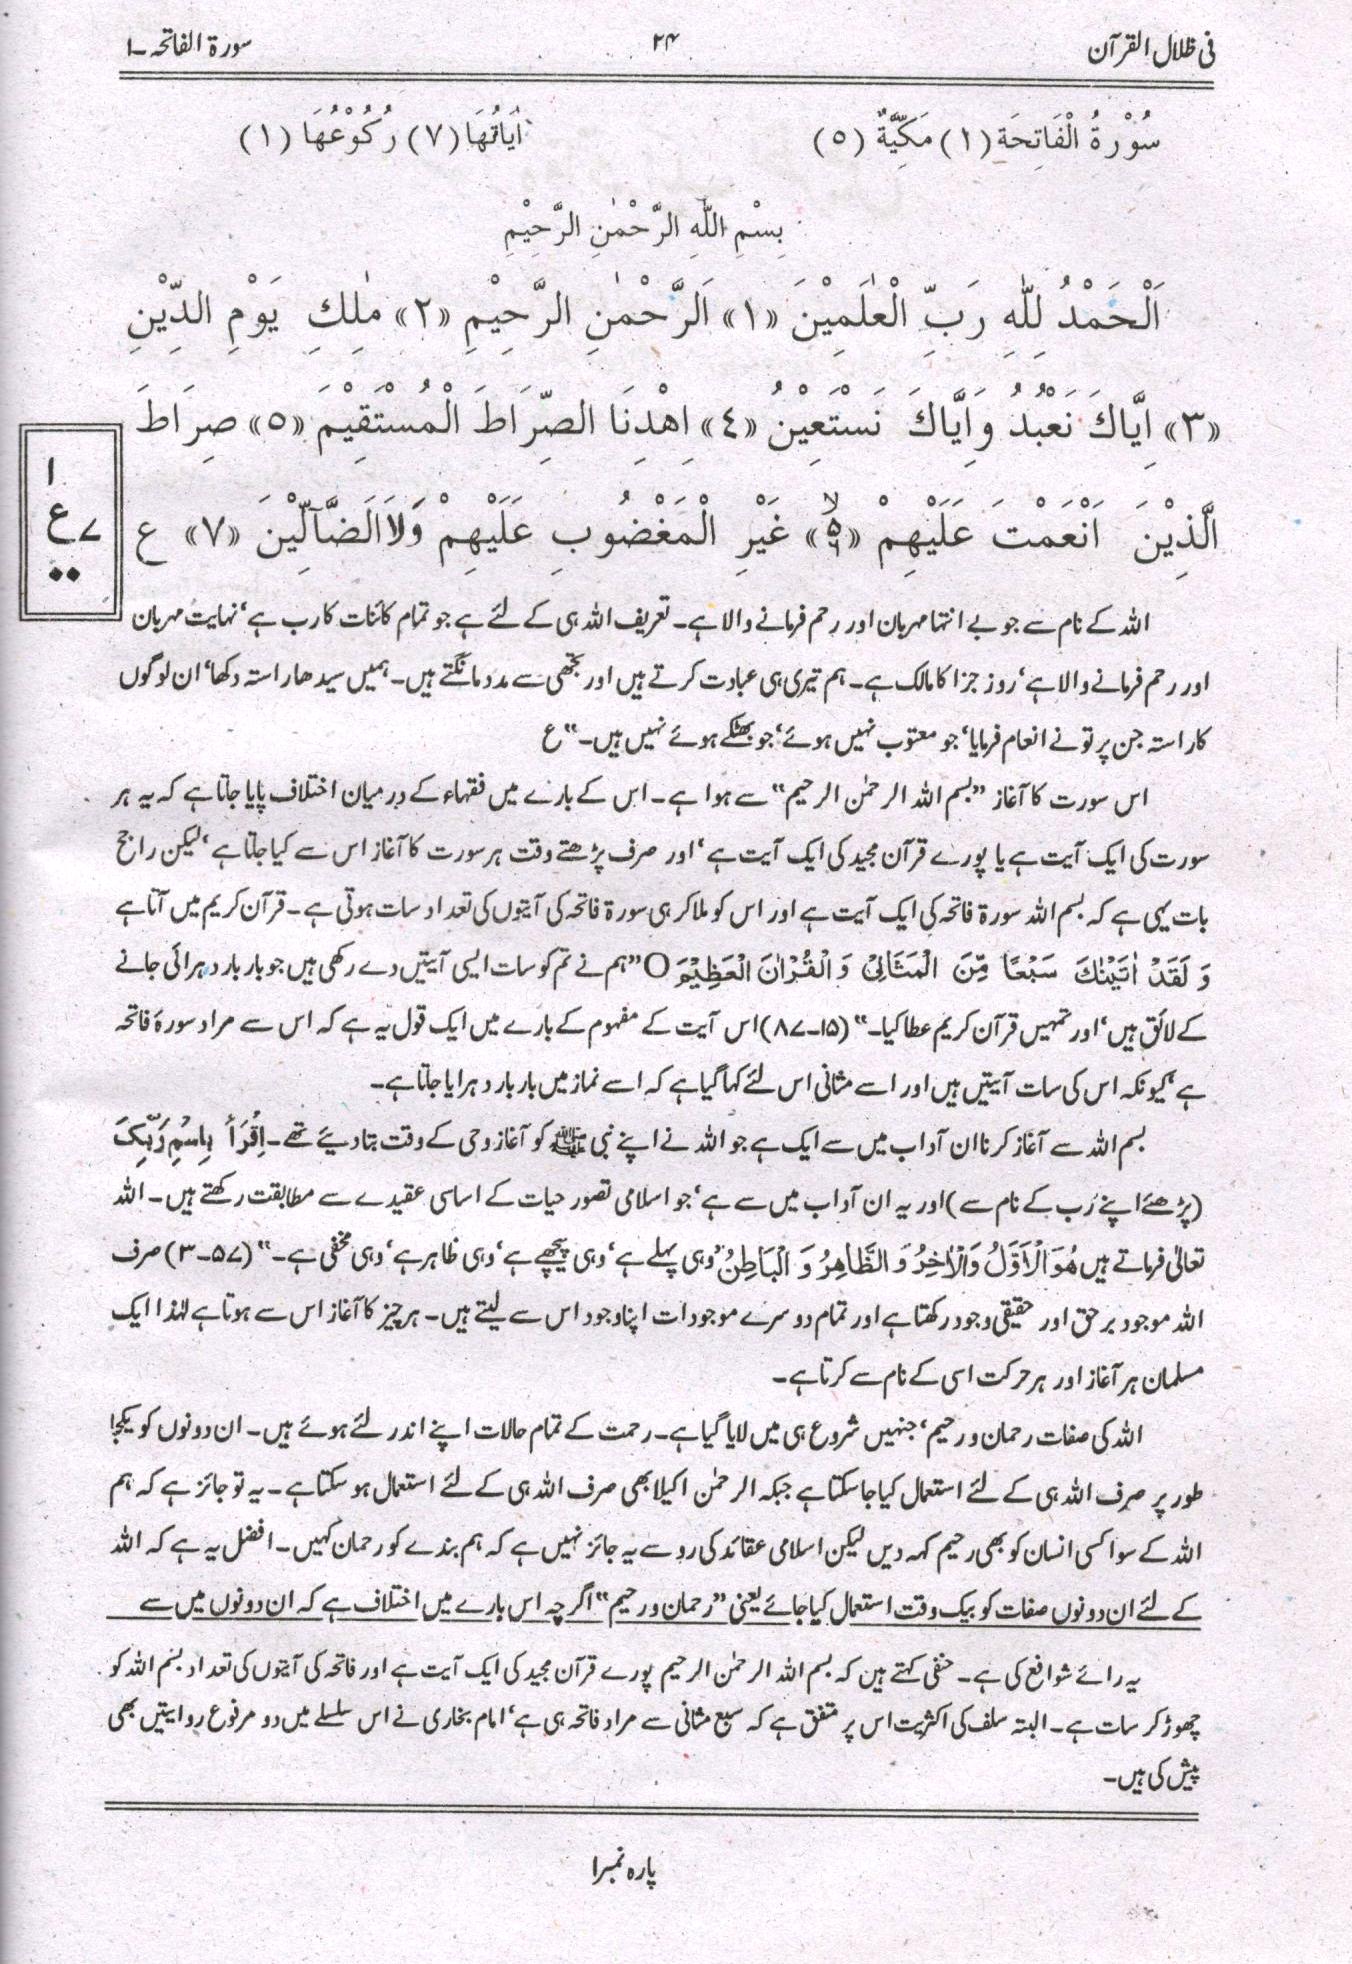 فی ظلال القرآن ۲۴ سورۃ الفاتحہ ۔۱
سُوْرَۃُ الْفَاتِحَۃِ (۱) مَکِّیَّۃٌ (۵) اٰیَاتُهَا (۷) رُکُوْعُهَا (۱)
بِسْمِ اللّٰهِ الرَّحْمٰنِ الرَّحِیْمِ
اَلْحَمْدُ لِلّٰهِ رَبِّ الْعٰلَمِیْنَ «۱» اَلرَّحْمٰنِ الرَّحِیْمِ «۲» مٰلِكِ یَوْمِ الدِّیْنِ
«۳» اِیَّاكَ نَعْبُدُ وَاِیَّاكَ نَسْتَعِیْنُ «٤» اِهْدِنَا الصِّرَاطَ الْمُسْتَقِیْمَ «٥» صِرَاطَ
الَّذِیْنَ اَنْعَمْتَ عَلَیْهِمْ غَیْرِ الْمَغْضُوبِ عَلَیْهِمْ وَلاَالضَّآلِّیْنَ «۷» ع
۱
ع ۷
اللہ کے نام سے جو بے انتہا مہربان اور رحم فرمانے والا ہے۔ تعریف اللہ ہی کے لئے ہے جو تمام کائنات کا رب ہے‘ نہایت مہربان
اور رحم فرمانے والا ہے‘ روز جزا کا مالک ہے۔ ہم تیری ہی عبادت کرتے ہیں اور تجھی سے مدد مانگتے ہیں۔ ہمیں سیدھا راستہ دکھا‘ ان لوگوں
کا راستہ جن پر تو نے انعام فرمایا‘ جو معتوب نہیں ہوئے‘ جو بھٹکے ہوئے نہیں ہیں۔“ ع
اس سورت کا آغاز ”بسم اللہ الرحمٰن الرحیم“ سے ہوا ہے۔ اس کے بارے میں فقہاء کے درمیان اختلاف پایا جاتا ہے کہ یہ ہر
سورت کی ایک آیت ہے یا پورے قرآن مجید کی ایک آیت ہے‘ اور صرف پڑھتے وقت ہر سورت کا آغاز اس سے کیا جاتا ہے‘ لیکن راجح
بات یہی ہے کہ بسم اللہ سورۃ فاتحہ کی ایک آیت ہے اور اس کو ملا کر ہی سورۃ فاتحہ کی آیتوں کی تعداد سات ہوتی ہے۔ قرآن کریم میں آتا ہے
وَ لَقَدْ اٰتَیْنٰكَ سَبْعًا مِّنَ الْمَثَانِیْ وَ الْقُرْاٰنَ الْعَظِیْمَ O ”ہم نے تم کو سات ایسی آیتیں دے رکھی ہیں جو بار بار دہرائی جانے
کے لائق ہیں‘ اور تمہیں قرآن کریم عطا کیا۔“ (۱۵۔۸۷) اس آیت کے مفہوم کے بارے میں ایک قول یہ ہے کہ اس سے مراد سورۂ فاتحہ
ہے‘ کیونکہ اس کی سات آیتیں ہیں اور اسے مثانی اس لئے کہا گیا ہے کہ اسے نماز میں بار بار دہرایا جاتا ہے۔
بسم اللہ سے آغاز کرنا ان آداب میں سے ایک ہے جو اللہ نے اپنے نبی ﷺ کو آغاز وحی کے وقت بتا دیئے تھے۔ اِقْرَاْ بِاسْمِ رَبِّکَ
(پڑھئے اپنے رب کے نام سے) اور یہ ان آداب میں سے ہے‘ جو اسلامی تصور حیات کے اساسی عقیدے سے مطابقت رکھتے ہیں۔ اللہ
تعالٰی فرماتے ہیں هُوَ الْاَوَّلُ وَالْاٰخِرُ وَ الظَّاهِرُ وَ الْبَاطِنُ ”وہی پہلے ہے‘ وہی پیچھے ہے‘ وہی ظاہر ہے‘ وہی مخفی ہے۔“ (۵۷۔۳) صرف
اللہ موجود برحق اور حقیقی وجود رکھتا ہے اور تمام دوسرے موجودات اپنا وجود اس سے لیتے ہیں۔ ہر چیز کا آغاز اس سے ہوتا ہے لہٰذا ایک
مسلمان ہر آغاز اور ہر حرکت اسی کے نام سے کرتا ہے۔
اللہ کی صفات رحمان و رحیم‘ جنہیں شروع ہی میں لایا گیا ہے۔ رحمت کے تمام حالات اپنے اندر لئے ہوئے ہیں۔ ان دونوں کو یکجا
طور پر صرف اللہ ہی کے لئے استعمال کیا جا سکتا ہے جبکہ الرحمٰن اکیلا بھی صرف اللہ ہی کے لئے استعمال ہو سکتا ہے۔ یہ تو جائز ہے کہ ہم
اللہ کے سوا کسی انسان کو بھی رحیم کہہ دیں لیکن اسلامی عقائد کی رو سے یہ جائز نہیں ہے کہ ہم بندے کو رحمان کہیں۔ افضل یہ ہے کہ اللہ
کے لئے ان دونوں صفات کو بیک وقت استعمال کیا جائے یعنی ”رحمان و رحیم“ اگرچہ اس بارے میں اختلاف ہے کہ ان دونوں میں سے
یہ رائے شوافع کی ہے۔ حنفی کہتے ہیں کہ بسم اللہ الرحمٰن الرحیم پورے قرآن مجید کی ایک آیت ہے اور فاتحہ کی آیتوں کی تعداد بسم اللہ کو
چھوڑ کر سات ہے۔ البتہ سلف کی اکثریت اس پر متفق ہے کہ سبع مثانی سے مراد فاتحہ ہی ہے‘ امام بخاری نے اس سلسلے میں دو مرفوع روایتیں بھی
پیش کی ہیں۔
پارہ نمبر ۱